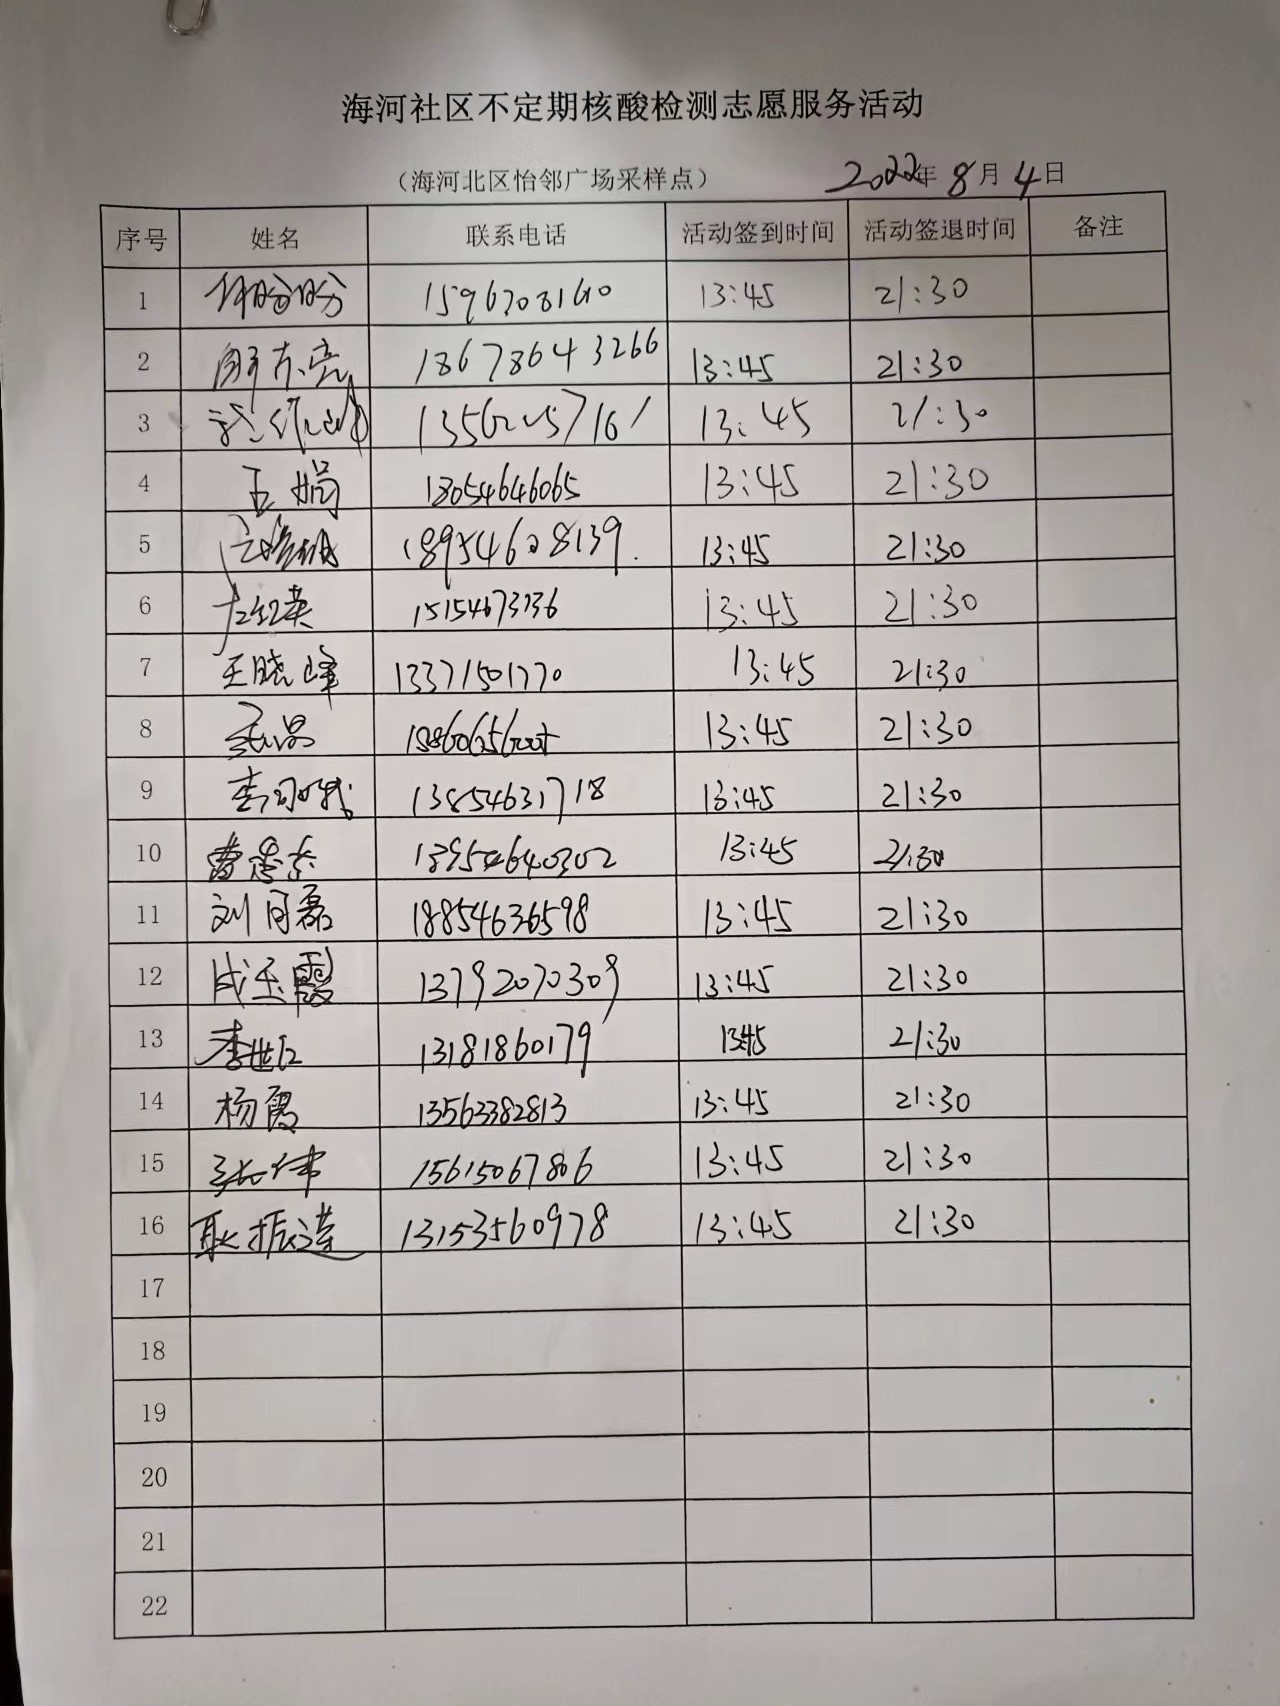 海河社区不定期核酸检测志愿服务活动
（海河北区怡邻广场采样点） 2022年 8月 4日
序号 姓名 联系电话 活动签到时间 活动签退时间 备注
1 13:45 21:30
2 18678643266 13:45 21:30
3 13:45 21:30
4 王娟 18054646065 13:45 21:30
5 13:45 21:30
6 13:45 21:30
7 王晓峰 13371501770 13:45 21:30
8 13:45 21:30
9 13854631718 13:45 21:30
10 13:45 21:30
11 刘同磊 18854636598 13:45 21:30
12 成玉霞 13792070309 13:45 21:30
13 13181860179 13:45 21:30
14 杨霞 13563382813 13:45 21:30
15 张伟 15615067806 13:45 21:30
16 13153560978 13:45 21:30
17
18
19
20
21
22